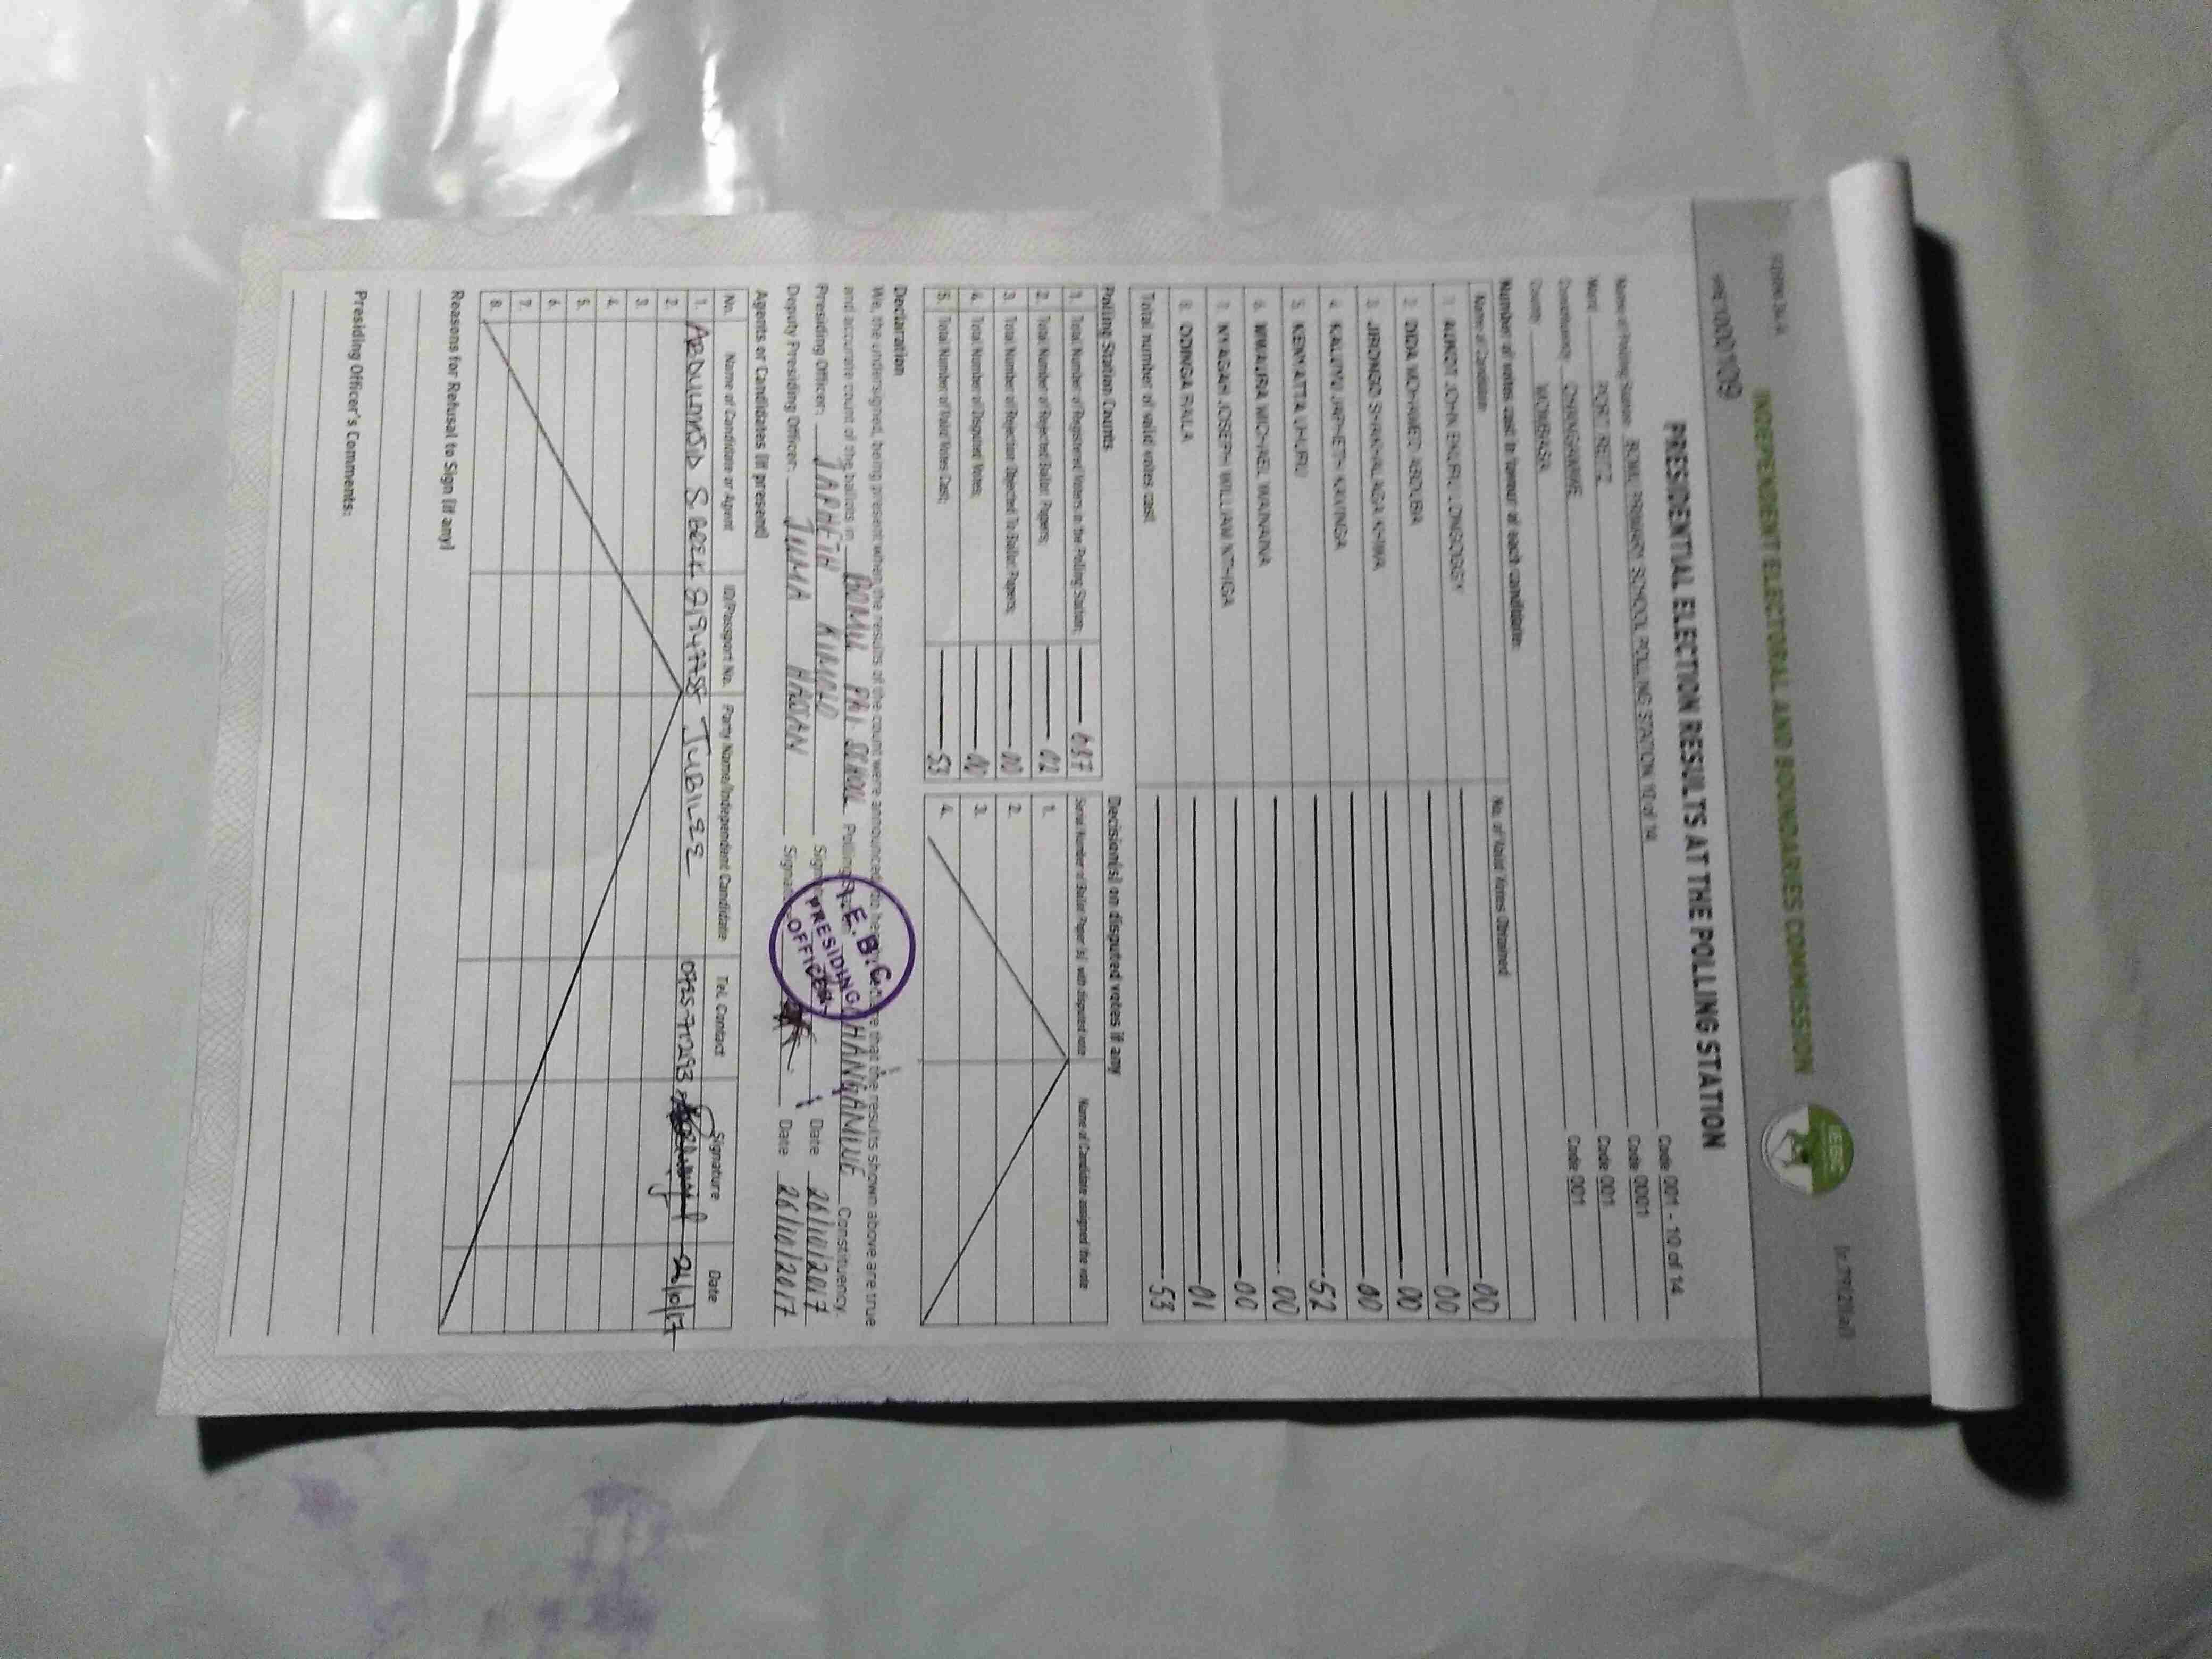 INDEPENDENT ELECTORAL AND BOUNDARIES COMMISSION
IEBC
PRESIDENTIAL ELECTION RESULTS AT THE POLLING STATION
Name of Polling Station BOMU PRIMARY SCHOOL POLLING STATION 10 of 14 Code 001 - 10 of 14
Code 0001
Ward PORT REITZ Code 001
Constituency CHANGAMWE Code 001
County MOMBASA
Number of votes cast in favour of each candidate:
Name of Candidate No. of Valid Votes Obtained
1. AUKOT JOHN EKURU LONGOGGY 00
2. DIDA MOHAMED ABDUBA 00
3. JIRONGO SHAKHALAGA KHWA 00
4. KALUYU JAPHETH KAVINGA 00
5. KENYATTA UHURU 52
6. MWAURA MICHAEL WAINAINA 00
7. NYAGAH JOSEPH WILLIAM NTHIGA 00
8. ODINGA RAILA 01
Total number of valid votes cast 53
Polling Station Counts
1. Total Number of Registered Voters in the Polling Station;
2. Total Number of Rejected Ballot Papers; 02
3. Total Number of Rejection Objected To Ballot Papers; 00
4. Total Number of Disputed Votes; 00
5. Total Number of Valid Votes Cast; 53
Decision(s) on disputed votes if any
Serial Number of Ballot Paper (s) with disputed vote Name of Candidate assigned the vote
1.
2.
3.
4.
Declaration
We, the undersigned, being present when the results of the count were announced, do hereby that the results shown above are true
and accurate count of the ballots in BOMU PRI SCHOOL Polling CHANGAMWE Constituency.
Presiding Officer: JAPHETH Date 26/10/2017
Deputy Presiding Officer: JUMA HASSAN Date 26/10/2017
I.E.B.C.
PRESIDING
OFFICER
Agents or Candidates (if present)
No. Name of Candidate or Agent ID/Passport No. Party Name/Independent Candidate Tel. Contact Signature Date
1. JUBILEE 26/10/17
2.
3.
4.
5.
6.
7.
8.
Reasons for Refusal to Sign (if any)
Presiding Officer's Comments: